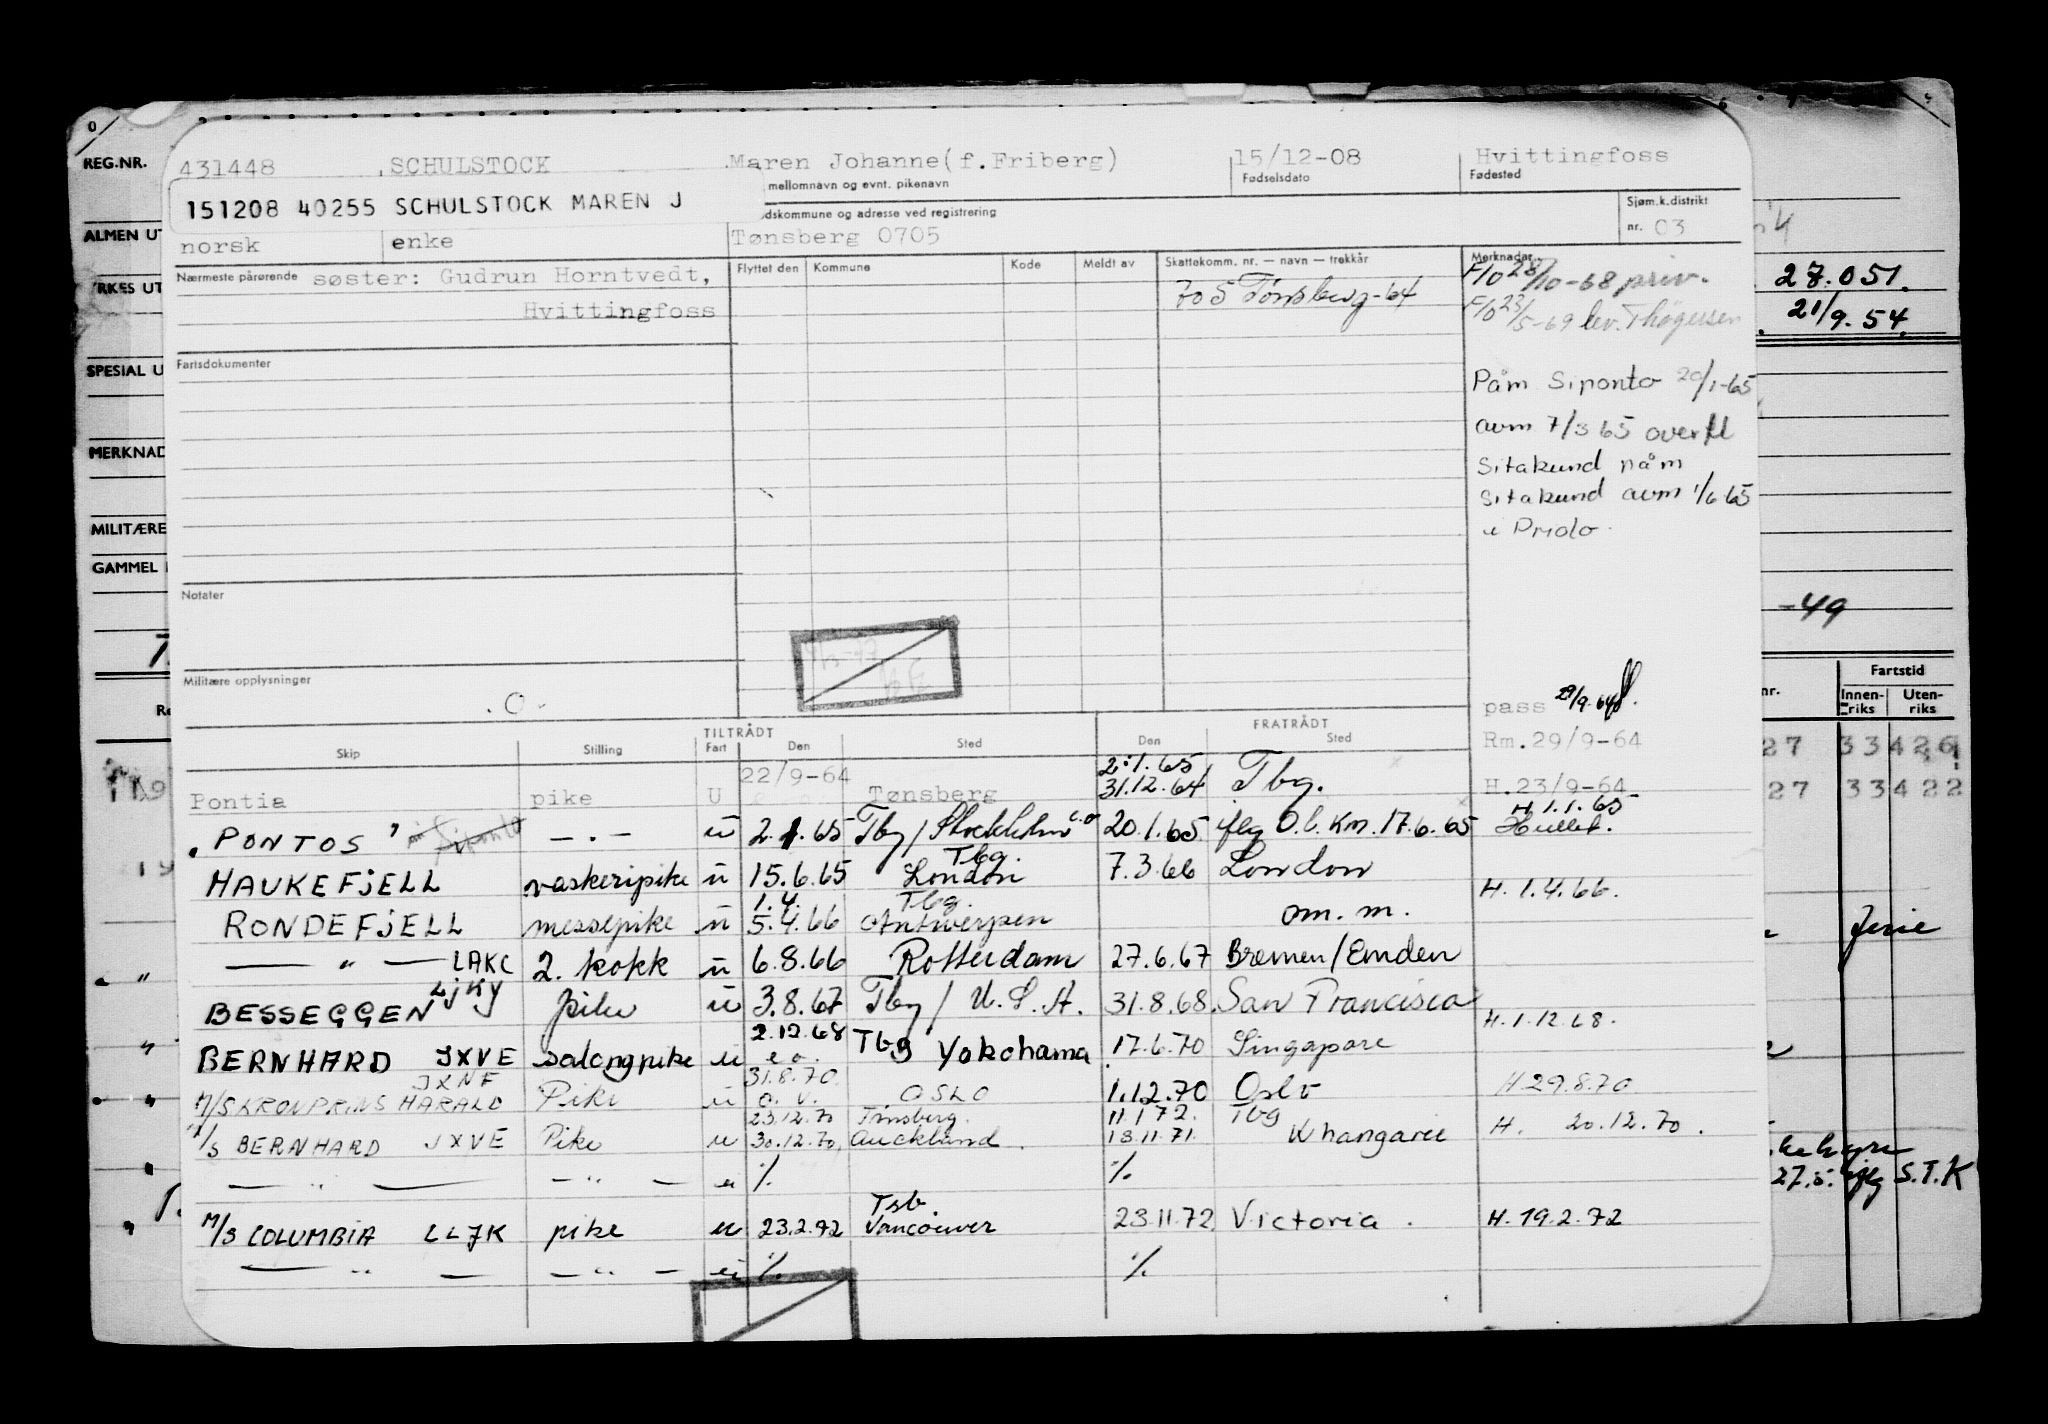 REG.NR. 431448 SCHULSTOCK Maren Johanne(f.Friberg) 15/12-08 Hvittingfoss
mellomnavn og evnt. pikenavn Fødselsdato Fødested
151208 40255 SCHULSTOCK MAREN J
dskommune og adresse ved registrering Sjøm.k.distrikt
ALMEN UT norsk enke Tønsberg 0705 nr. 03
Nærmeste pårørende søster: Gudrun Horntvedt, Flyttet den Kommune Kode Meldt av Skattekomm. nr. — navn — trekkår Merknader
RKES UT F/O 28/10-68 priv. 27.051.
Hvittingfoss 705 Tønsberg-64 F/O 23/5-69 lev. Thøgersen 21/9.54.
SPESIAL U Fartsdokumenter
Påm Siponto 20/1-65
avm 7/3 65 overfl
MERKNAD Sitakund påm
Sitakund avm 1/6 65
MILITÆRE i Priolo.
GAMMEL
Notater -49
7.
Militære opplysninger Fartstid
.O. pass 29/9.64
nr. Innen-riks Uten-riks
TILTRÅDT FRATRÅDT
Skip Stilling Fart Den Sted Den Sted Rm.29/9-64
27 33426
22/9-64 2.1.65
Pontia pike U Tønsberg 31.12.64 Tbg. H.23/9-64
27 33422
H 1.1.65
"PONTOS" Siponto — . — u 2.1.65 Tbg/Stockholm e.o 20.1.65 iflg O.b. km. 17.6.65
Tbg.
HAUKEFJELL vaskeripike u 15.6.65 London 7.3.66 London
1.4. Tbg. H. 1.4.66.
RONDEFJELL messepike u 5.4.66 Antwerpen om. m.
Ferie
— " — LAKC 2. kokk u 6.8.66 Rotterdam 27.6.67 Bremen/Emden
BESSEGGEN LJKY pike u 3.8.67 Tbg / U.S.A. 31.8.68. San Francisco
2.12.68 H. 1.12.68.
BERNHARD JXVE salongpike u e.o. Tbg Yokohama 17.6.70 Singapore
JXNF 31.8.70
M/S KRONPRINS HARALD Pike u o.v. OSLO 1.12.70 Oslo H 29.8.70
23.12.70 Tønsberg. 11.1 72. Tbg
M/S BERNHARD JXVE Pike u 30.12.70, Auckland. 18.11.71. Whangarei H. 20.12.70.
— " — — " — u % %
27.5. iflg S.T.K
Tsb.
M/S COLUMBIA LLJK pike u 23.2.72 Vancouver 23.11.72 Victoria. H. 19.2.72
— " — — " — u % %